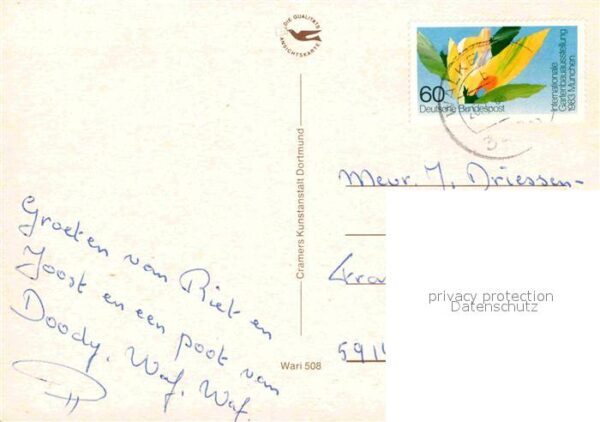 DIE QUALITÄTS
ANSICHTSKARTE
60
Deutsche Bundespost
Internationale
Gartenbauausstellung
1983 München
Cramers Kunstanstalt Dortmund
Wari 508
Groeten van Riet en
Joost en een poot van
Doody. Waf. Waf.
Mevr. J. Driessen-
5914
privacy protection
Datenschutz